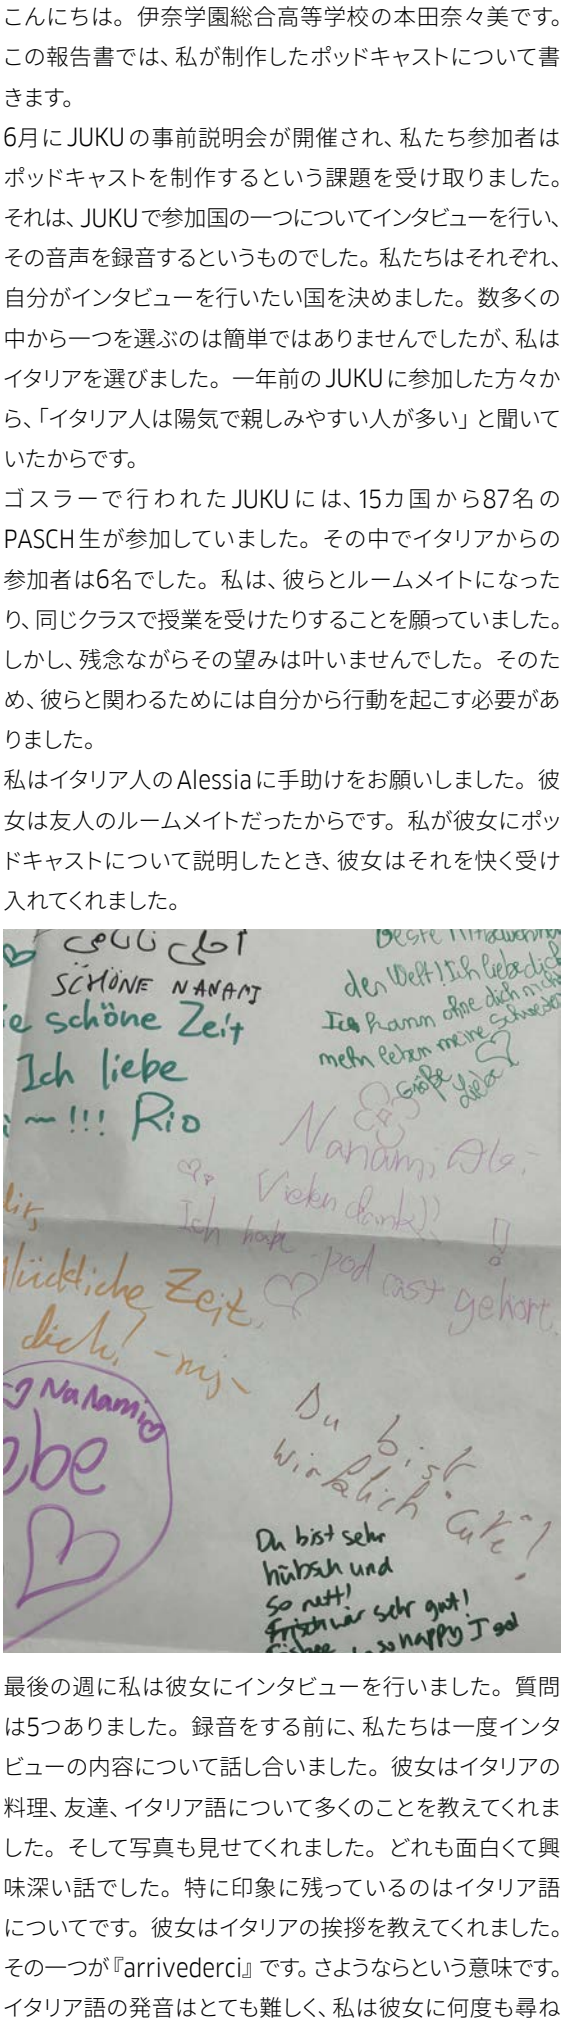 こんにちは。伊奈学園総合高等学校の本田奈々美です。
この報告書では、私が制作したポッドキャストについて書
きます。
6月にJUKUの事前説明会が開催され、私たち参加者は
ポッドキャストを制作するという課題を受け取りました。
それは、JUKUで参加国の一つについてインタビューを行い、
その音声を録音するというものでした。私たちはそれぞれ、
自分がインタビューを行いたい国を決めました。数多くの
中から一つを選ぶのは簡単ではありませんでしたが、私は
イタリアを選びました。一年前のJUKUに参加した方々か
ら、「イタリア人は陽気で親しみやすい人が多い」と聞いて
いたからです。
ゴスラーで行われたJUKUには、15カ国から87名の
PASCH生が参加していました。その中でイタリアからの
参加者は6名でした。私は、彼らとルームメイトになった
り、同じクラスで授業を受けたりすることを願っていました。
しかし、残念ながらその望みは叶いませんでした。そのた
め、彼らと関わるためには自分から行動を起こす必要があ
りました。
私はイタリア人のAlessiaに手助けをお願いしました。彼
女は友人のルームメイトだったからです。私が彼女にポッ
ドキャストについて説明したとき、彼女はそれを快く受け
入れてくれました。
SCHÖNE NANAMI
schöne Zeit
Ich liebe
!!! Rio
Beste
der Welt! Ich liebe dich
Ich kann ohne dich nicht
mehr leben meine Schwester
Größe Liebe
Nanami, Ale
Vielen dank!!
Ich habe podcast gehört.
glückliche Zeit
dich!
Nanami
Du bist
wirklich Cute!
Du bist sehr
hübsch und
so nett!
Frisch war sehr gut!
so happy I got
最後の週に私は彼女にインタビューを行いました。質問
は5つありました。録音をする前に、私たちは一度インタ
ビューの内容について話し合いました。彼女はイタリアの
料理、友達、イタリア語について多くのことを教えてくれま
した。そして写真も見せてくれました。どれも面白くて興
味深い話でした。特に印象に残っているのはイタリア語
についてです。彼女はイタリアの挨拶を教えてくれました。
その一つが『arrivederci』です。さようならという意味です。
イタリア語の発音はとても難しく、私は彼女に何度も尋ね